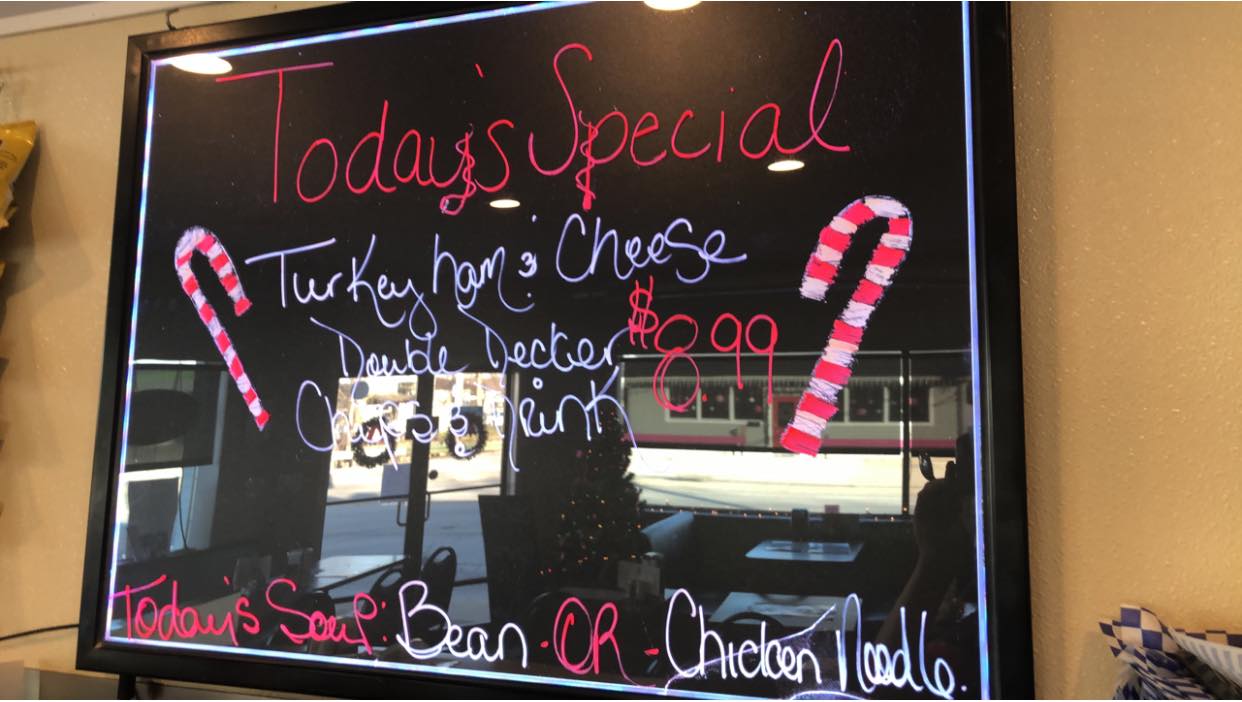 Today's Special
Turkey ham & Cheese
Double Decker $8.99
Chips & Drink
Today's Soup: Bean - OR - Chicken Noodle.